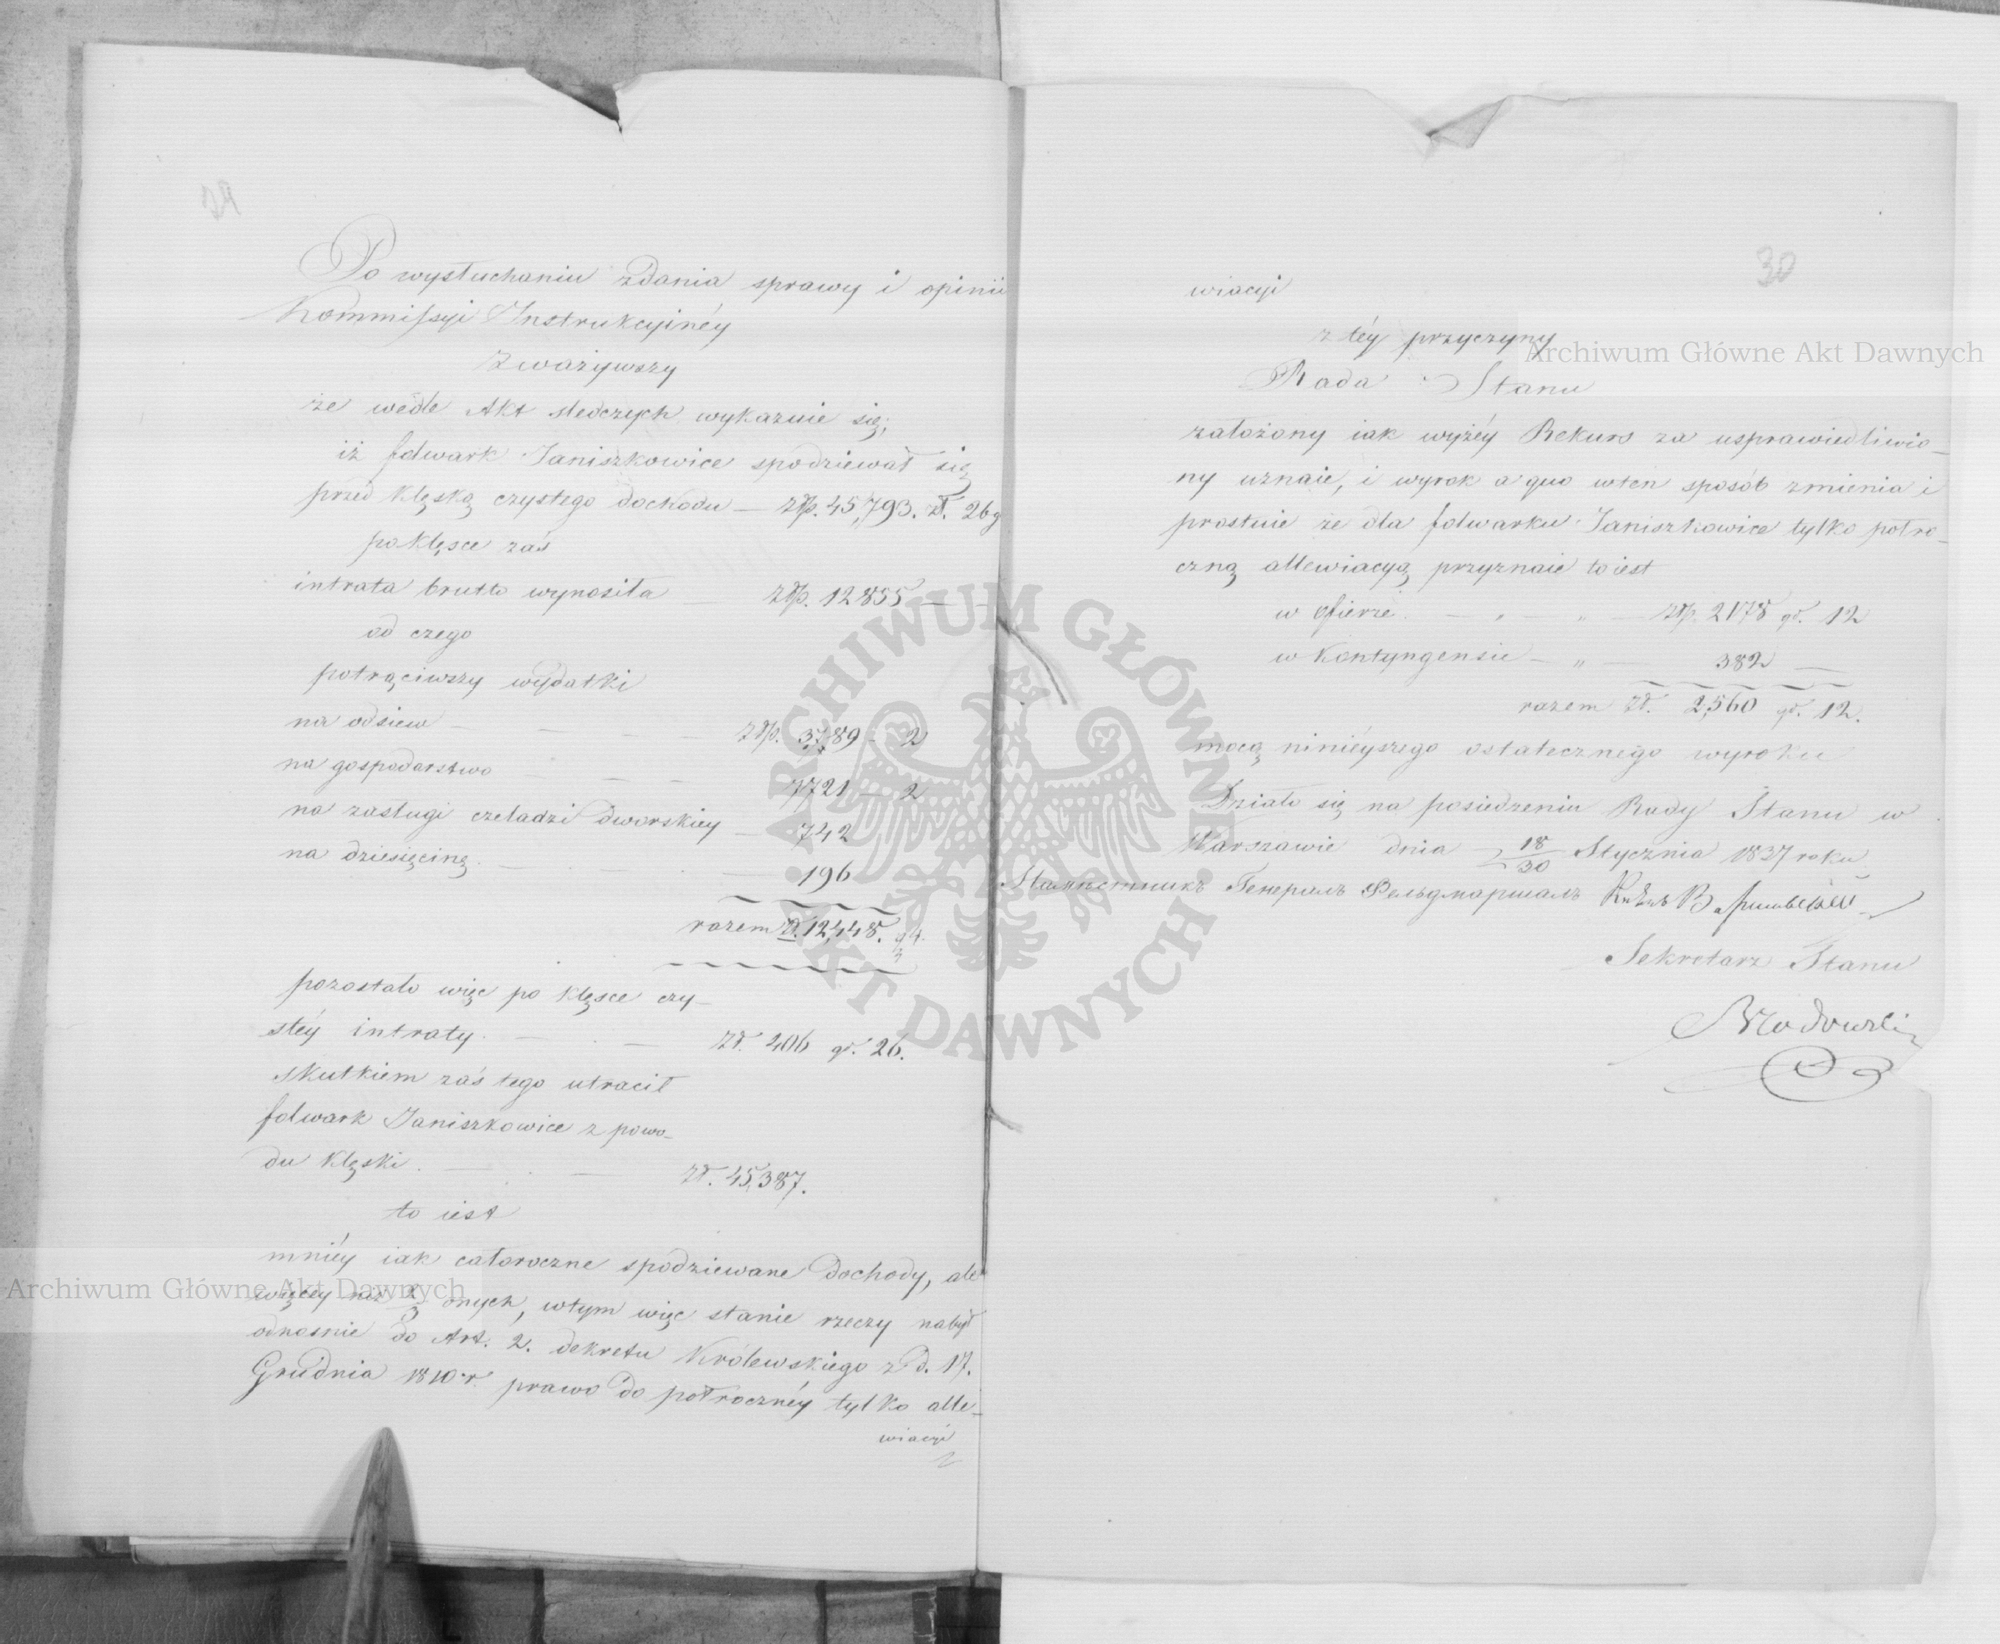 29
Po wysłuchaniu zdania sprawy i opinii
Kommissyi Instrukcyinéy
Zważywszy
że wedle Akt śledczych wykazuie się,
iż folwark Janiszkowice spodziewał się
przed klęską czystego dochodu — złp. 45,793. zł. 26 g
po klęsce zaś
intrata brutto wynosiła — złp. 12855 — —
od czego
potrąciwszy wydatki
na odsiew — — — — złp. 3,789 — 2
na gospodarstwo — — — 7721 — 2
na zasługi czeladzi dworskiey — 742
na dziesięcinę. — 196
razem zł. 12,448. g 4.
pozostało więc po klęsce czy-
stéy intraty. — . — zł. 406 gr. 26.
skutkiem zaś tego utracił
folwark Janiszkowice z powo-
du klęski. — . — zł. 45,387.
to iest
mniéy iak całoroczne spodziewane dochody, ale
więcéy niż onych, w tym więc stanie rzeczy nabył
odnośnie do Art. 2. dekretu Królewskiego z d. 17.
Grudnia 1810 r. prawo do półrocznéy tylko alle-
wiacyi
30
wiacyi
z téy przyczyny
Rada Stanu
założony iak wyżéy Rekurs za usprawiedliwio-
ny uznaie, i wyrok a quo w ten sposób zmienia i
prostuie że dla folwarku Janiszkowice tylko półro-
czną allewiacyą przyznaie to iest
w ofierze. — „ — „ — złp. 2178 gr. 12
w Kontyngensie — „ — 382 —
razem zł. 2,560 gr. 12.
mocą ninieyszego ostatecznego wyroku
Działo się na posiedzeniu Rady Stanu w
Warszawie dnia 18/30 Stycznia 1837 roku
Намѣстникъ Генералъ Фельдмаршалъ Князь Варшавскій
Sekretarz Stanu
Archiwum Główne Akt Dawnych
Archiwum Główne Akt Dawnych
ARCHIWUM GŁÓWNE AKT DAWNYCH